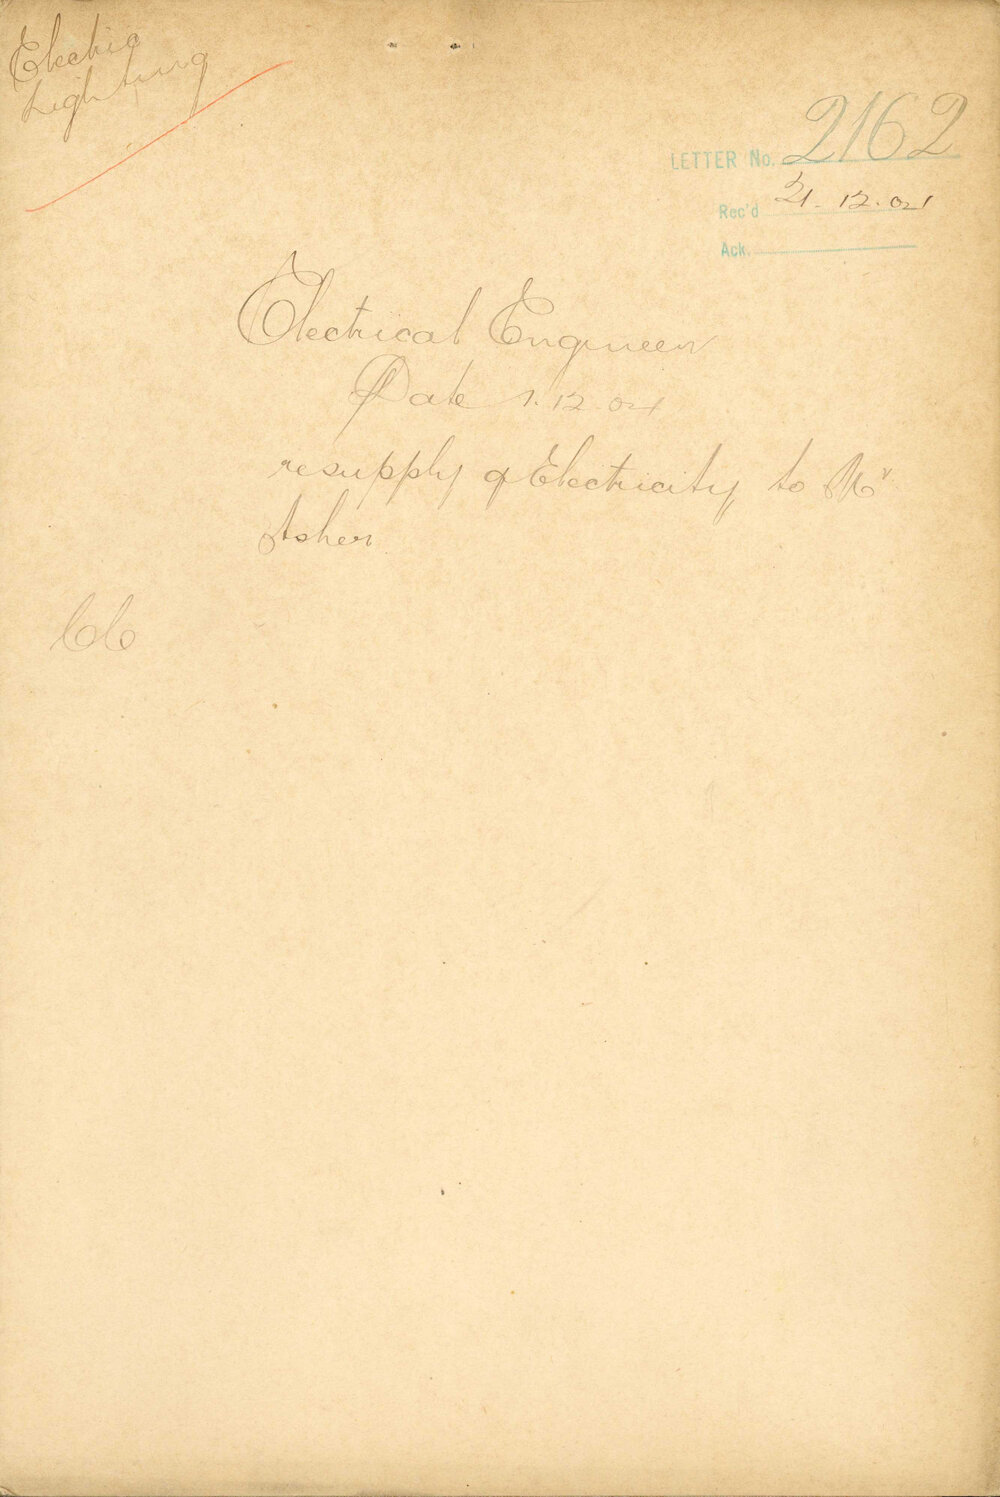 Electric
Lighting
LETTER No. 2162
Rec'd 21.12.04
Ack.
Electrical Engineer
Date 1.12.04
re supply of Electricity to Mr
Asher